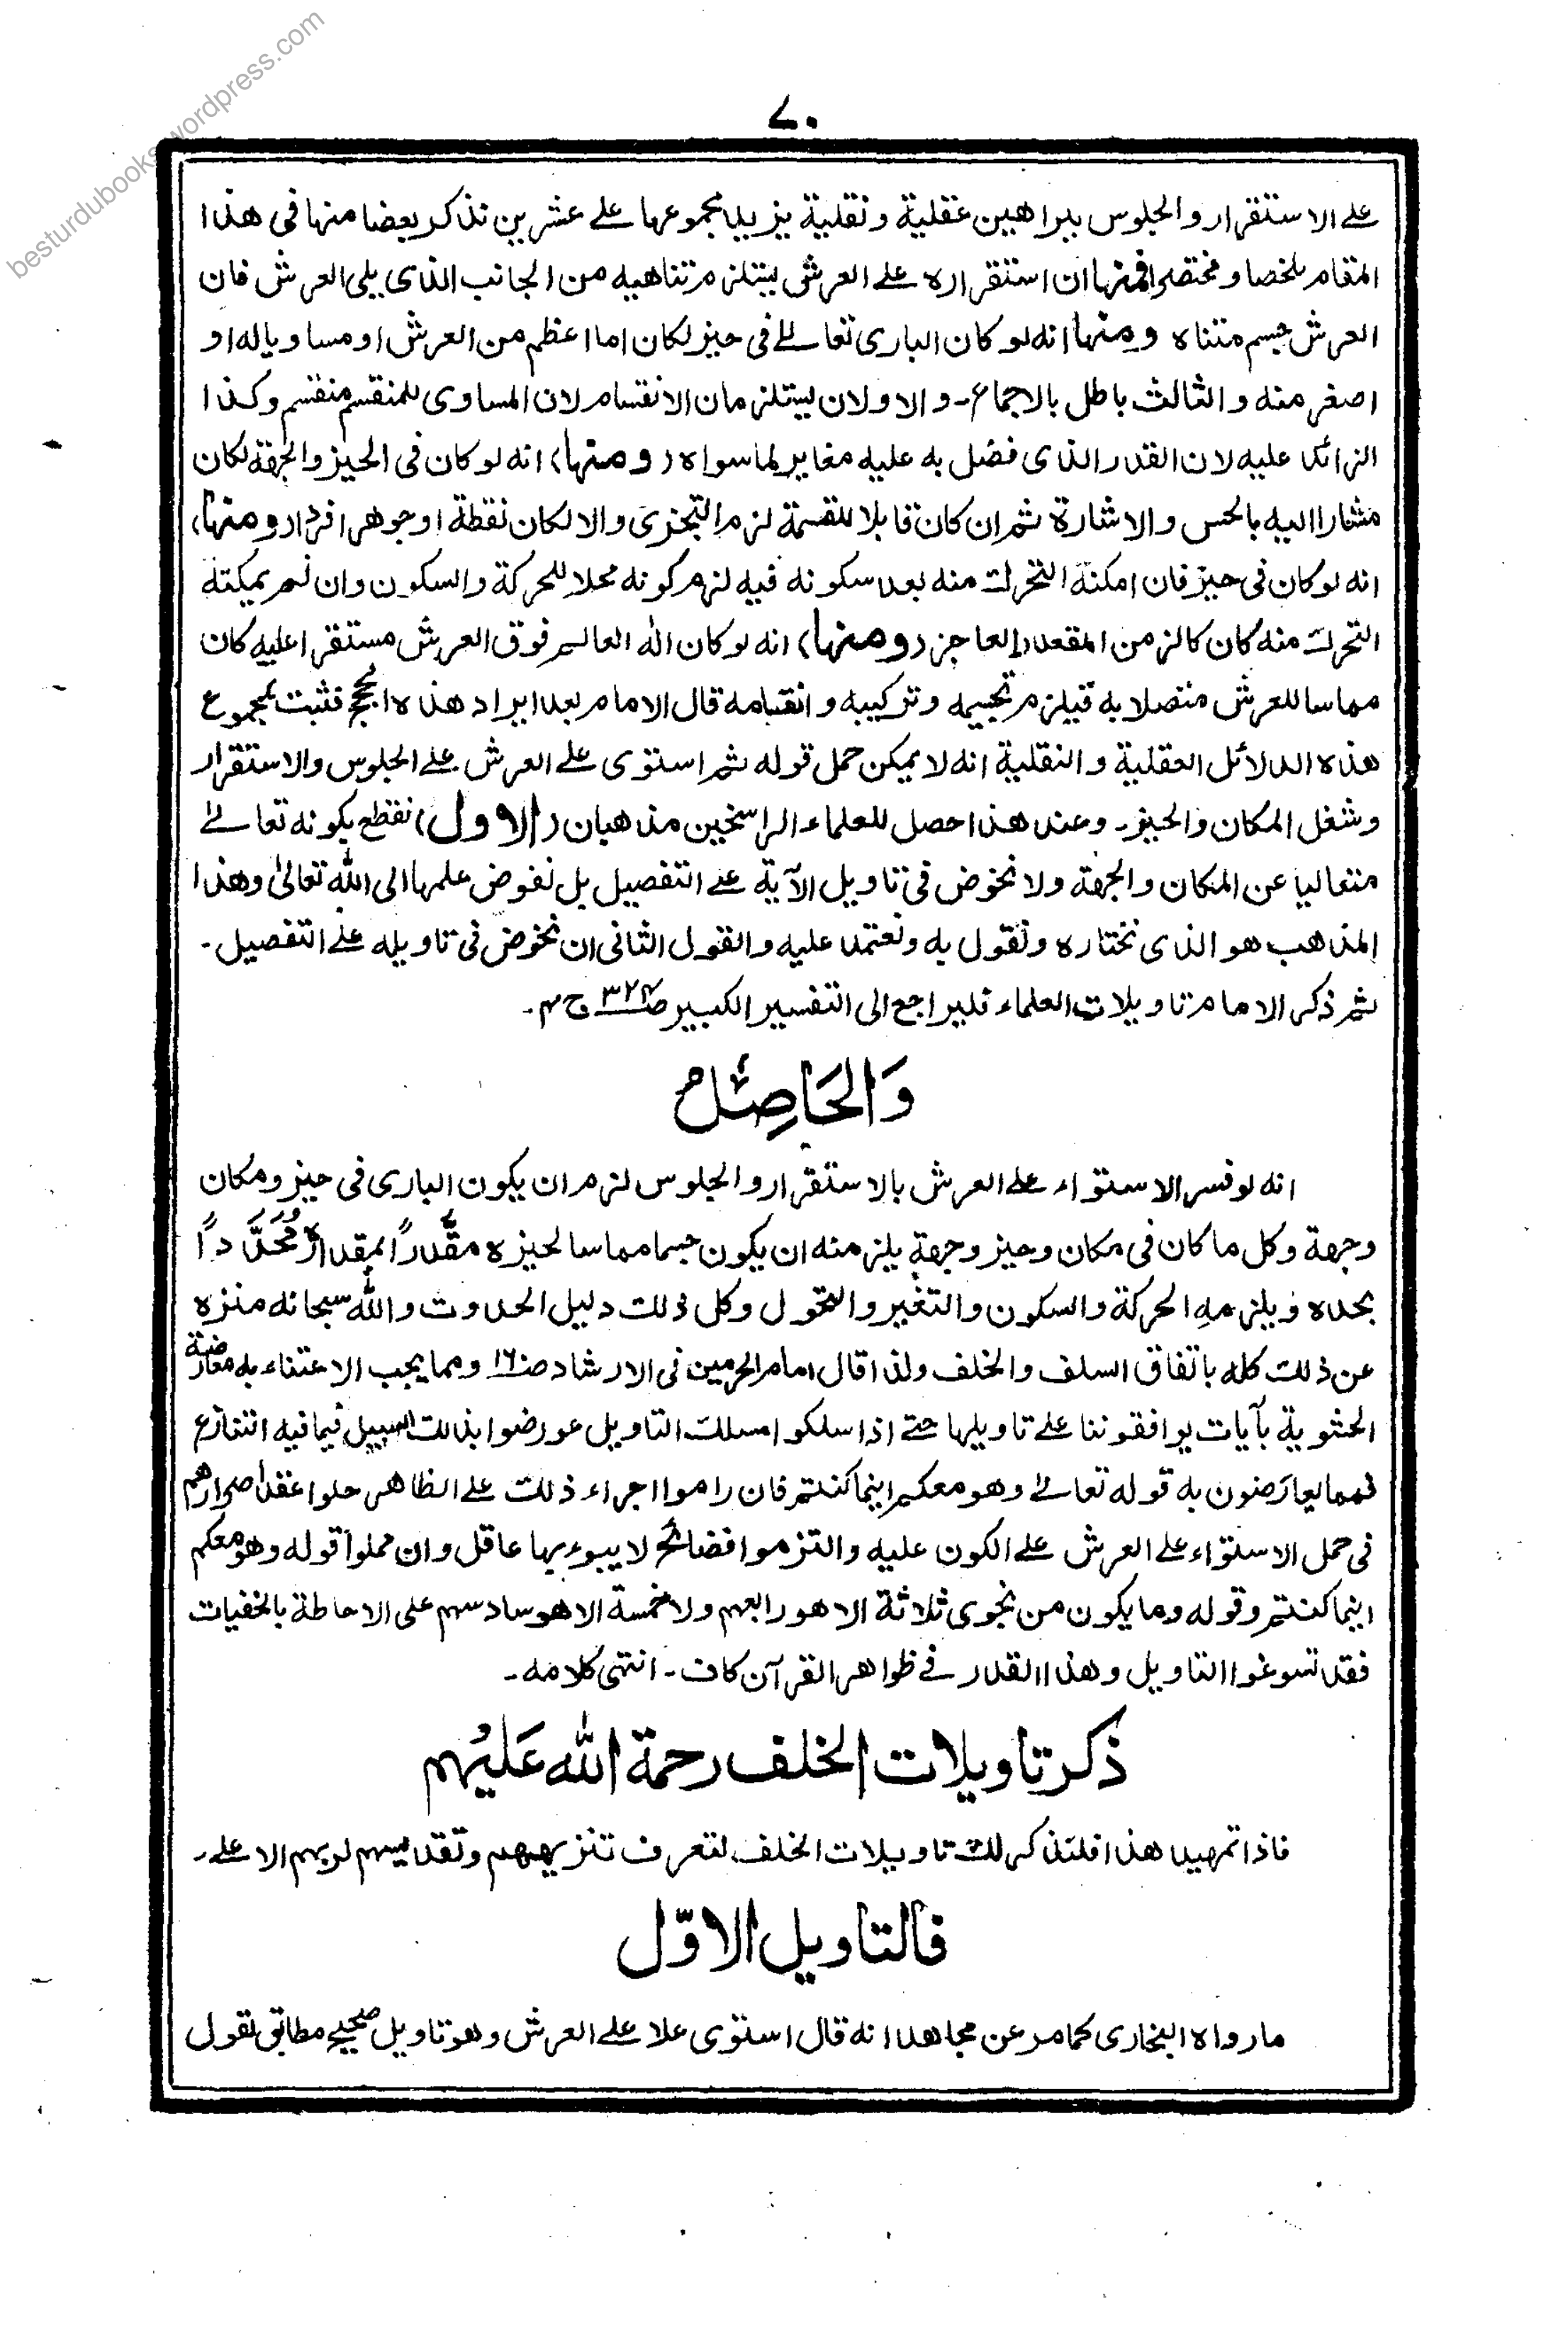 besturdubooks.wordpress.com
٧٠
على الاستقرار والجلوس ببراهين عقلية ونقلية يزيد مجموعها على عشرين نذكر بعضا منها فى هذا
المقام ملخصا ومختصرا فمنها ان استقراره على العرش يستلزم تناهيه من الجانب الذى يلى العرش فان
العرش جسم متناه ومنها انه لو كان البارى تعالىٰ فى حيز لكان اما اعظم من العرش او مساويا له او
اصغر منه والثالث باطل بالاجماع۔ والاولان يستلزمان الانقسام لان المساوى للمنقسم منقسم وكذا
الزائد عليه لان القدر الذى فضل به عليه مغاير لما سواه (ومنها) انه لو كان فى الحيز والجهة لكان
مشارا اليه بالحس والاشارة ثم ان كان قابلا للقسمة لزم التجزى والا لكان نقطة او جوهرا فردا (ومنها)
انه لو كان فى حيز فان امكنه التحرك منه بعد سكونه فيه لزم كونه محلا للحركة والسكون وان لم يمكنه
التحرك منه كان كالزمن المقعد العاجز (ومنها) انه لو كان اله العالم فوق العرش مستقرا عليه كان
مماسا للعرش متصلا به فيلزم تجسيمه وتركيبه وانقسامه قال الامام بعد ايراد هذه الحجج فثبت بمجموع
هذه الدلائل العقلية والنقلية انه لا يمكن حمل قوله ثم استوى على العرش على الجلوس والاستقرار
وشغل المكان والحيز۔ وعند هذا حصل للعلماء الراسخين مذهبان (الاول) نقطع بكونه تعالىٰ
متعاليا عن المكان والجهة ولا نخوض فى تاويل الآية على التفصيل بل نفوض علمها الى الله تعالىٰ وهذا
المذهب هو الذى نختاره ونقول به ونعتمد عليه والقول الثانى ان نخوض فى تاويله على التفصيل۔
ثم ذكر الامام تاويلات العلماء فليراجع الى التفسير الكبير صـ٣٢٤ ج ٤۔
وَالحَاصِلُ
انه لو فسر الاستواء على العرش بالاستقرار والجلوس لزم ان يكون البارى فى حيز ومكان
وجهة وكل ما كان فى مكان وحيز وجهة يلزم منه ان يكون جسما مماسا لحيزه مقَدَّرًا بمقداره مُحَدَّدًا
بحده ويلزمه الحركة والسكون والتغير والتحول وكل ذلك دليل الحدوث والله سبحانه منزه
عن ذلك كله باتفاق السلف والخلف ولذا قال امام الحرمين فى الارشاد صـ١٦ ومما يجب الاعتناء به معارضة
الحشوية بآيات يوافقوننا على تاويلها حتى اذا سلكوا مسلك التاويل عورضوا بذلك السبيل فيما فيه التنازع
فمما يعارضون به قوله تعالىٰ وهو معكم اينما كنتم فان راموا اجراء ذلك على الظاهر حلوا عقدا صرارهم
فى حمل الاستواء على العرش على الكون عليه والتزموا فضائح لا يبوء بها عاقل وان حملوا قوله وهو معكم
اينما كنتم وقوله وما يكون من نجوى ثلاثة الا هو رابعهم ولا خمسة الا هو سادسهم على الاحاطة بالخفيات
فقد تسوغوا التاويل وهذا القدر فى ظواهر القرآن كاف۔ انتهى كلامه۔
ذكر تاويلات الخلف رحمة الله عَليْهم
فاذا تمهيد هذا فلنذكر لك تاويلات الخلف لتعرف تنزيههم وتقديسهم لربهم الاعلى۔
فالتاويل الاوّل
ما رواه البخارى كما مر عن مجاهد انه قال استوى علا على العرش وهو تاويل صحيح مطابق لقول